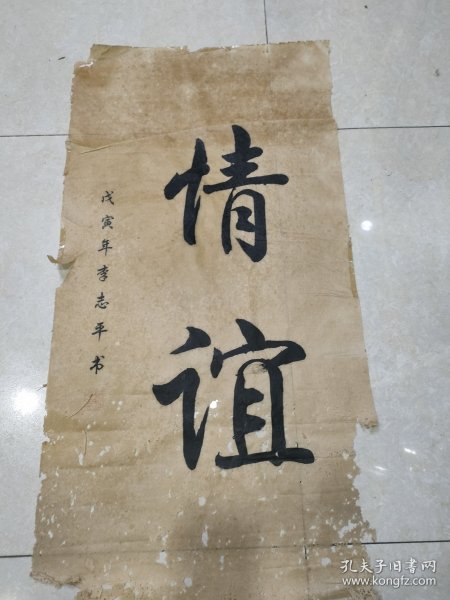 情
谊
戊寅年李志平书
孔夫子旧书网
www.kongfz.com